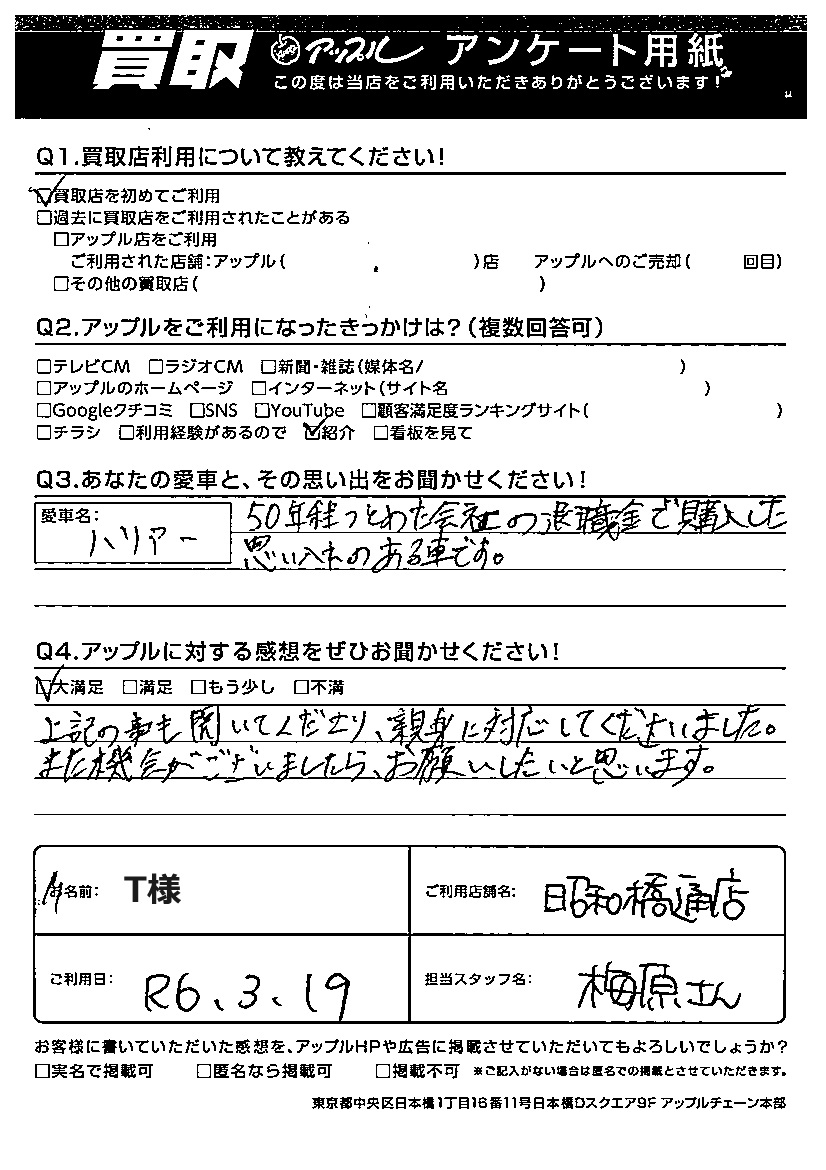 買取 アップル アンケート用紙
この度は当店をご利用いただきありがとうございます!
Q1.買取店利用について教えてください!
☑買取店を初めてご利用
□過去に買取店をご利用されたことがある
□アップル店をご利用
ご利用された店舗:アップル( )店 アップルへのご売却( 回目)
□その他の買取店( )
Q2.アップルをご利用になったきっかけは?(複数回答可)
□テレビCM □ラジオCM □新聞・雑誌(媒体名/ )
□アップルのホームページ □インターネット(サイト名 )
□Googleクチコミ □SNS □YouTube □顧客満足度ランキングサイト( )
□チラシ □利用経験があるので ☑紹介 □看板を見て
Q3.あなたの愛車と、その思い出をお聞かせください!
愛車名:
ハリアー
50年経つとわた会社の退職金で購入した
思い入れのある車です。
Q4.アップルに対する感想をぜひお聞かせください!
☑大満足 □満足 □もう少し □不満
上記の事も聞いてくださり、親身に対応してくださいました。
また機会がございましたら、お願いしたいと思います。
お名前: T様 ご利用店舗名: 昭和橋通店
ご利用日: R6、3、19 担当スタッフ名: 梅原さん
お客様に書いていただいた感想を、アップルHPや広告に掲載させていただいてもよろしいでしょうか?
□実名で掲載可 □匿名なら掲載可 □掲載不可 ※ご記入がない場合は匿名での掲載とさせていただきます。
東京都中央区日本橋1丁目16番11号日本橋Dスクエア9F アップルチェーン本部